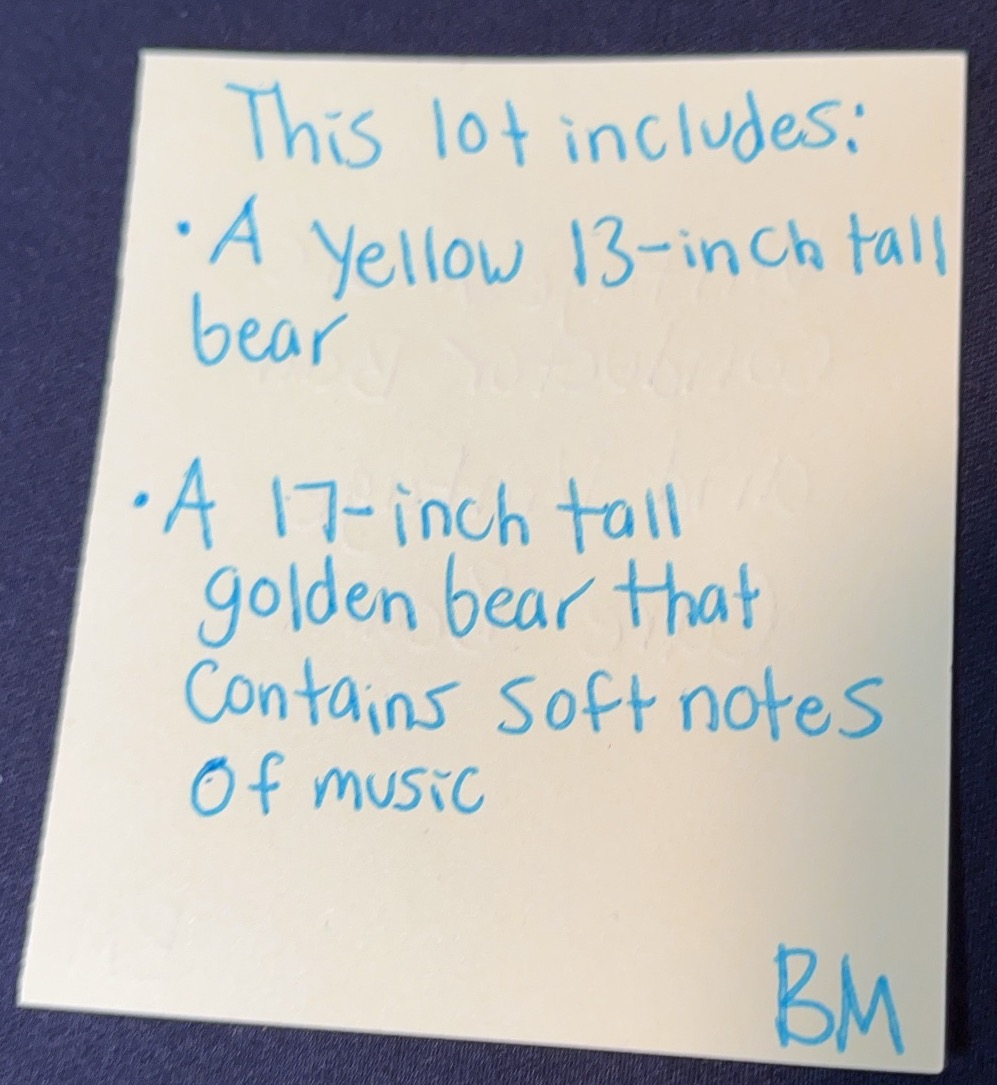 This lot includes:
• A yellow 13-inch tall
bear
• A 17-inch tall
golden bear that
contains soft notes
of music
BM